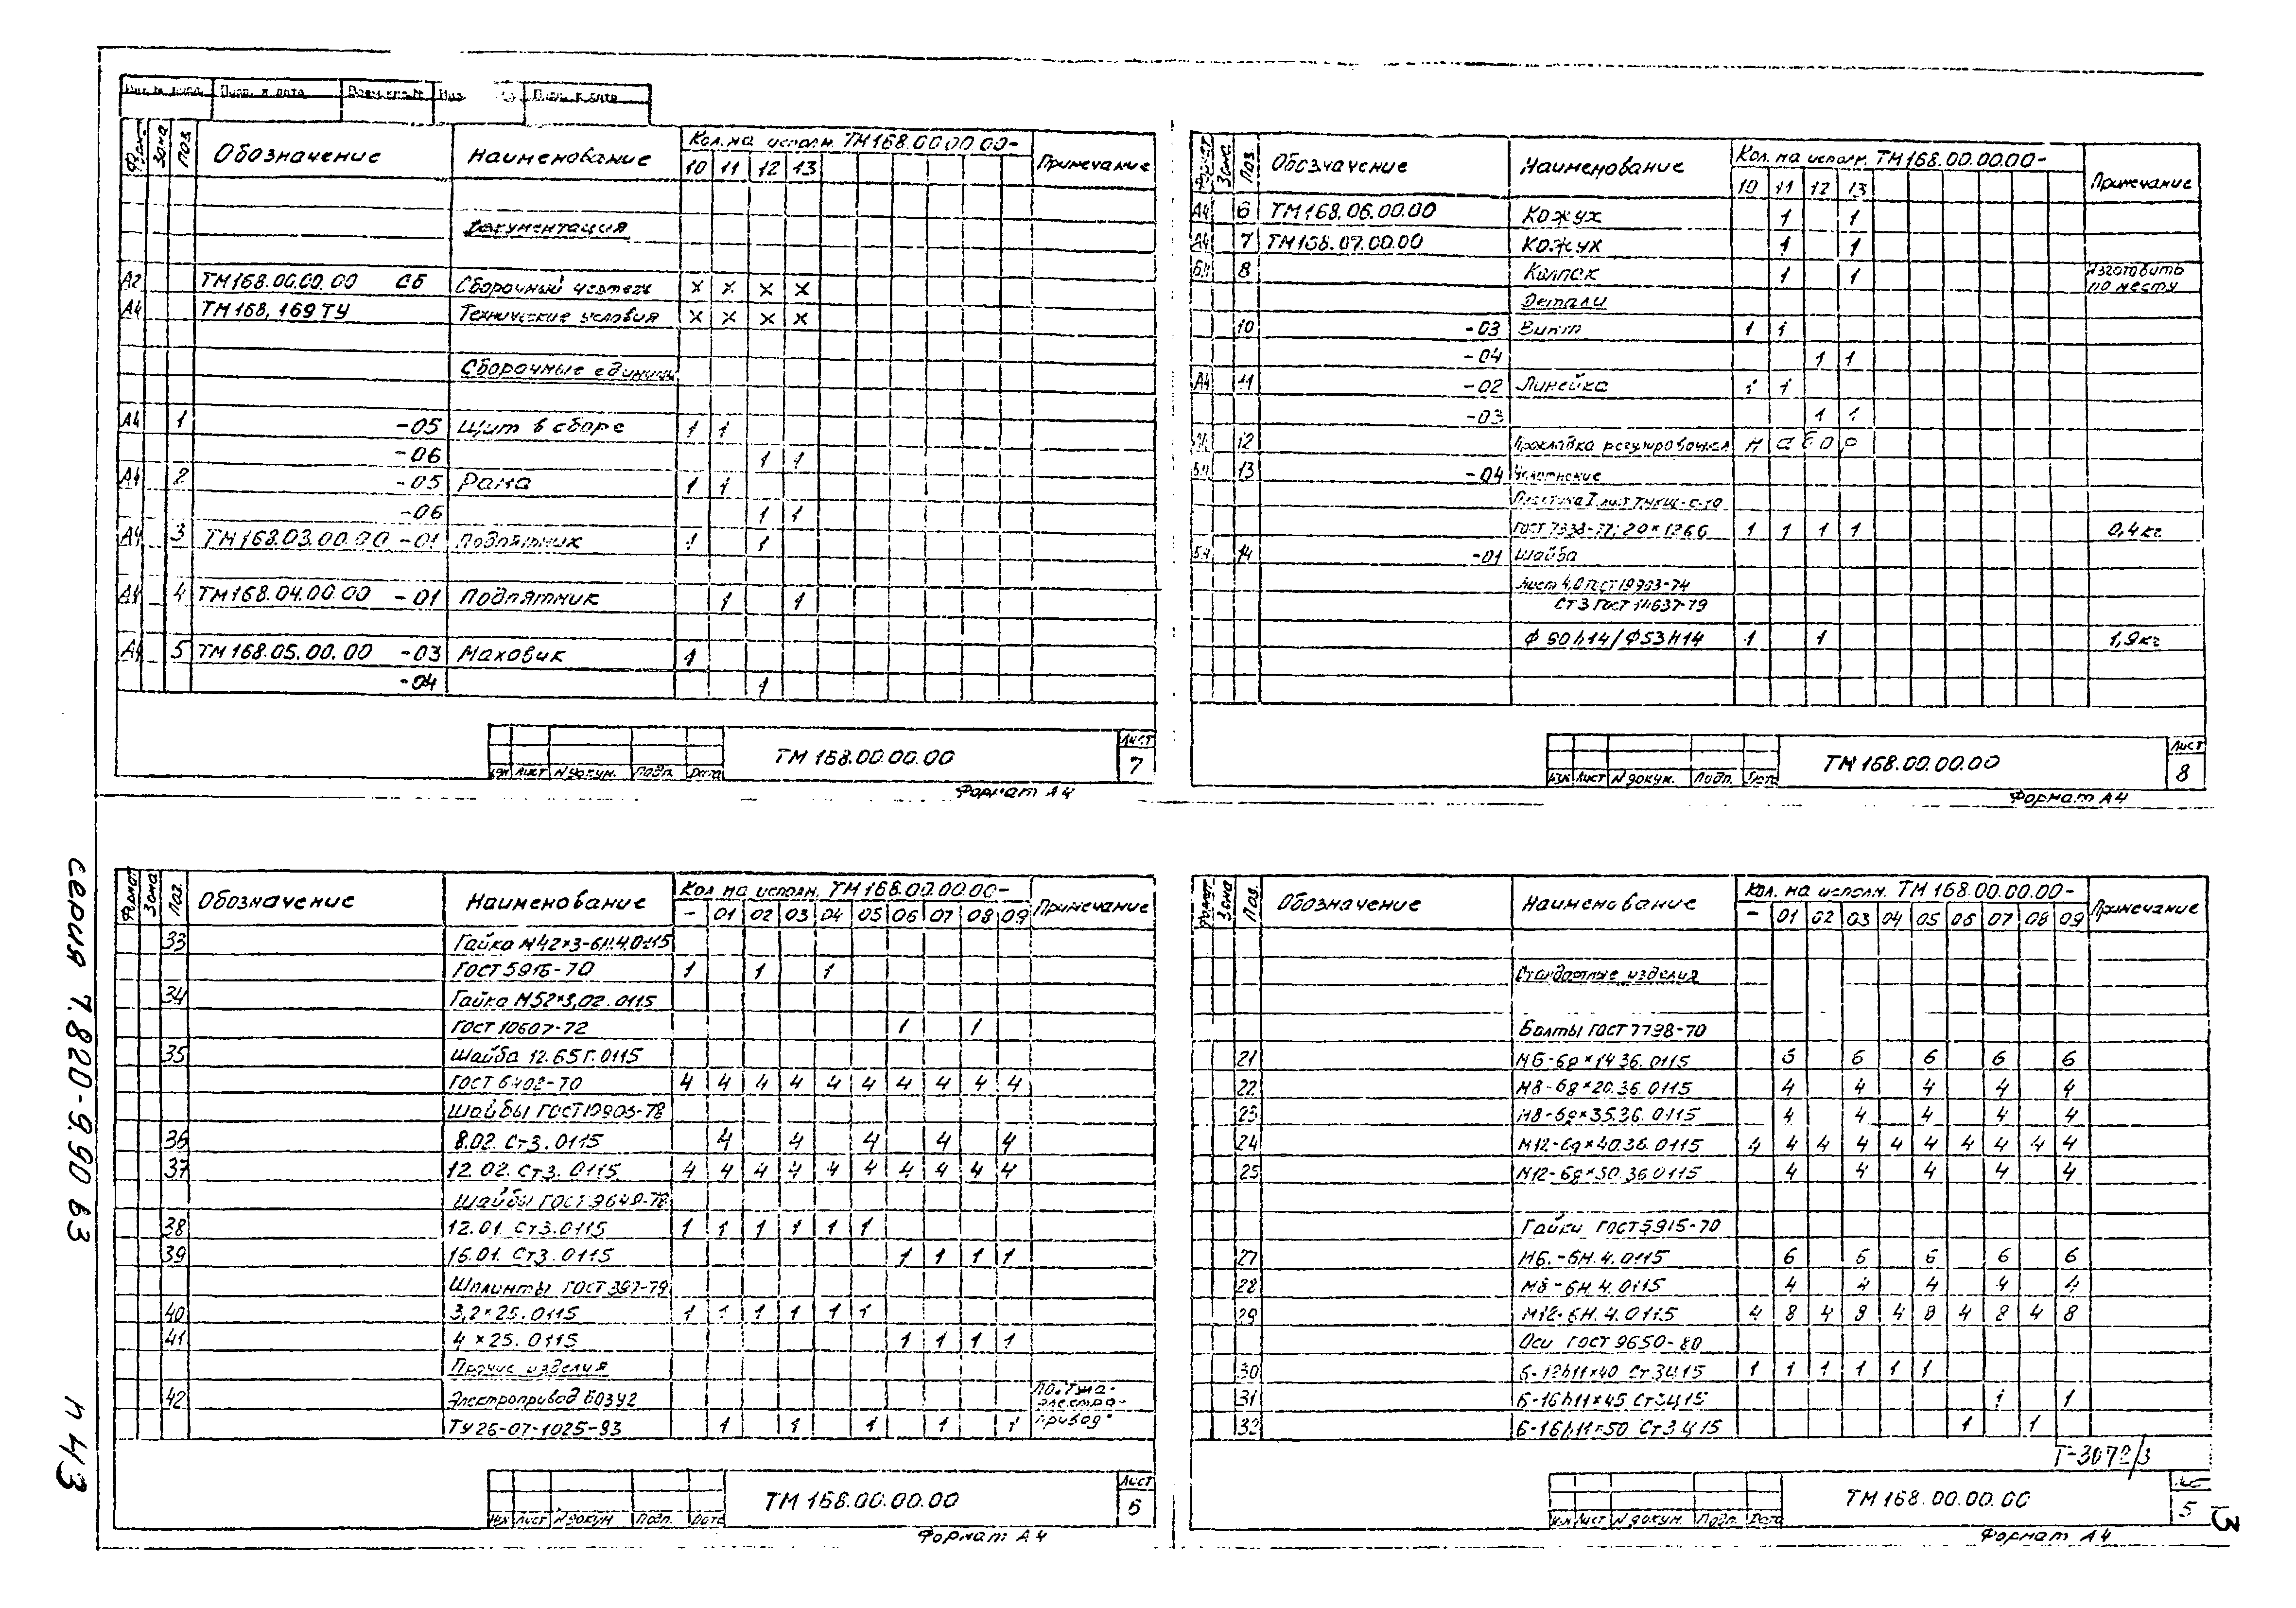 Подп. и дата
Обозначение Наименование Кол. на исполн. ТМ168.00.00.00- Примечание
Зона Поз. 10 11 12 13
Документация
А2 ТМ168.00.00.00 СБ Сборочный чертеж × × × ×
А4 ТМ168, 169 ТУ Технические условия × × × ×
Сборочные единицы
А4 1 -05 Щит в сборе 1 1
-06 1 1
А4 2 -05 Рама 1 1
-06 1 1
А4 3 ТМ168.03.00.00 -01 Подпятник 1 1
А4 4 ТМ168.04.00.00 -01 Подпятник 1 1
А4 5 ТМ168.05.00.00 -03 Маховик 1
-04 1
ТМ168.00.00.00 Лист 7
Изм Лист № докум. Подп. Дата
Формат А4
Формат Зона Поз. Обозначение Наименование Кол. на исполн. ТМ168.00.00.00- Примечание
10 11 12 13
А4 6 ТМ168.06.00.00 Кожух 1 1
А4 7 ТМ168.07.00.00 Кожух 1 1
БЧ 8 Колпак 1 1 Изготовить
по месту
Детали
10 -03 Винт 1 1
-04 1 1
А4 11 -02 Линейка 1 1
-03 1 1
12 Прокладка регулировочная Н а б о р
БЧ 13 -04 Уплотнение
Пластина I лист ТМКЩ-С-10
ГОСТ 7338-77; 20×1266 1 1 1 1 0,4кг
БЧ 14 -01 Шайба
Лист 4,0 ГОСТ 19903-74
Ст 3 ГОСТ 14637-79
Ф 90h14/Ф53H14 1 1 1,9кг
ТМ168.00.00.00 Лист 8
Изм Лист № докум. Подп. Дата
Формат А4
серия 7.820-9.90 в3
Формат Зона Поз. Обозначение Наименование Кол. на исполн. ТМ168.00.00.00- Примечание
- 01 02 03 04 05 06 07 08 09
33 Гайка М42×3-6Н.4.0115
ГОСТ 5915-70 1 1 1
34 Гайка М52×3,02.0115
ГОСТ 10607-72 1 1
35 Шайба 12.65Г.0115
ГОСТ 6402-70 4 4 4 4 4 4 4 4 4 4
Шайбы ГОСТ 10906-78
36 8.02. Ст3. 0115 4 4 4 4 4
37 12.02. Ст3. 0115 4 4 4 4 4 4 4 4 4 4
Шайбы ГОСТ 9649-78
38 12.01. Ст3.0115 1 1 1 1 1 1
39 16.01. Ст3.0115 1 1 1 1
Шплинты ГОСТ 397-79
40 3,2×25.0115 1 1 1 1 1 1
41 4×25.0115 1 1 1 1
Прочие изделия
42 Электропривод Б03У2
ТУ26-07-1025-83 1 1 1 1 1 привод"
ТМ168.00.00.00 Лист 6
Изм Лист № докум Подп. Дата
Формат А4
Зона Поз. Обозначение Наименование Кол. на исполн. ТМ168.00.00.00- Примечание
- 01 02 03 04 05 06 07 08 09
Стандартные изделия
Болты ГОСТ 7798-70
21 М6-6g×14.36.0115 6 6 6 6 6
22 М8-6g×20.36.0115 4 4 4 4 4
23 М8-6g×35.36.0115 4 4 4 4 4
24 М12-6g×40.36.0115 4 4 4 4 4 4 4 4 4 4
25 М12-6g×50.36.0115 4 4 4 4 4
Гайки ГОСТ 5915-70
27 М6.-6Н.4.0115 6 6 6 6 6
28 М8-6Н.4.0115 4 4 4 4 4
29 М12-6Н.4.0115 4 8 4 8 4 8 4 8 4 8
Оси ГОСТ 9650-80
30 6-12h11×40 Ст3Ц15 1 1 1 1 1 1
31 6-16h11×45 Ст3Ц15 1 1
32 6-16h11×50 Ст3.Ц15 1 1
Т-3072/3
ТМ168.00.00.00 5
Изм Лист № докум. Подп. Дата
Формат А4
ч 43